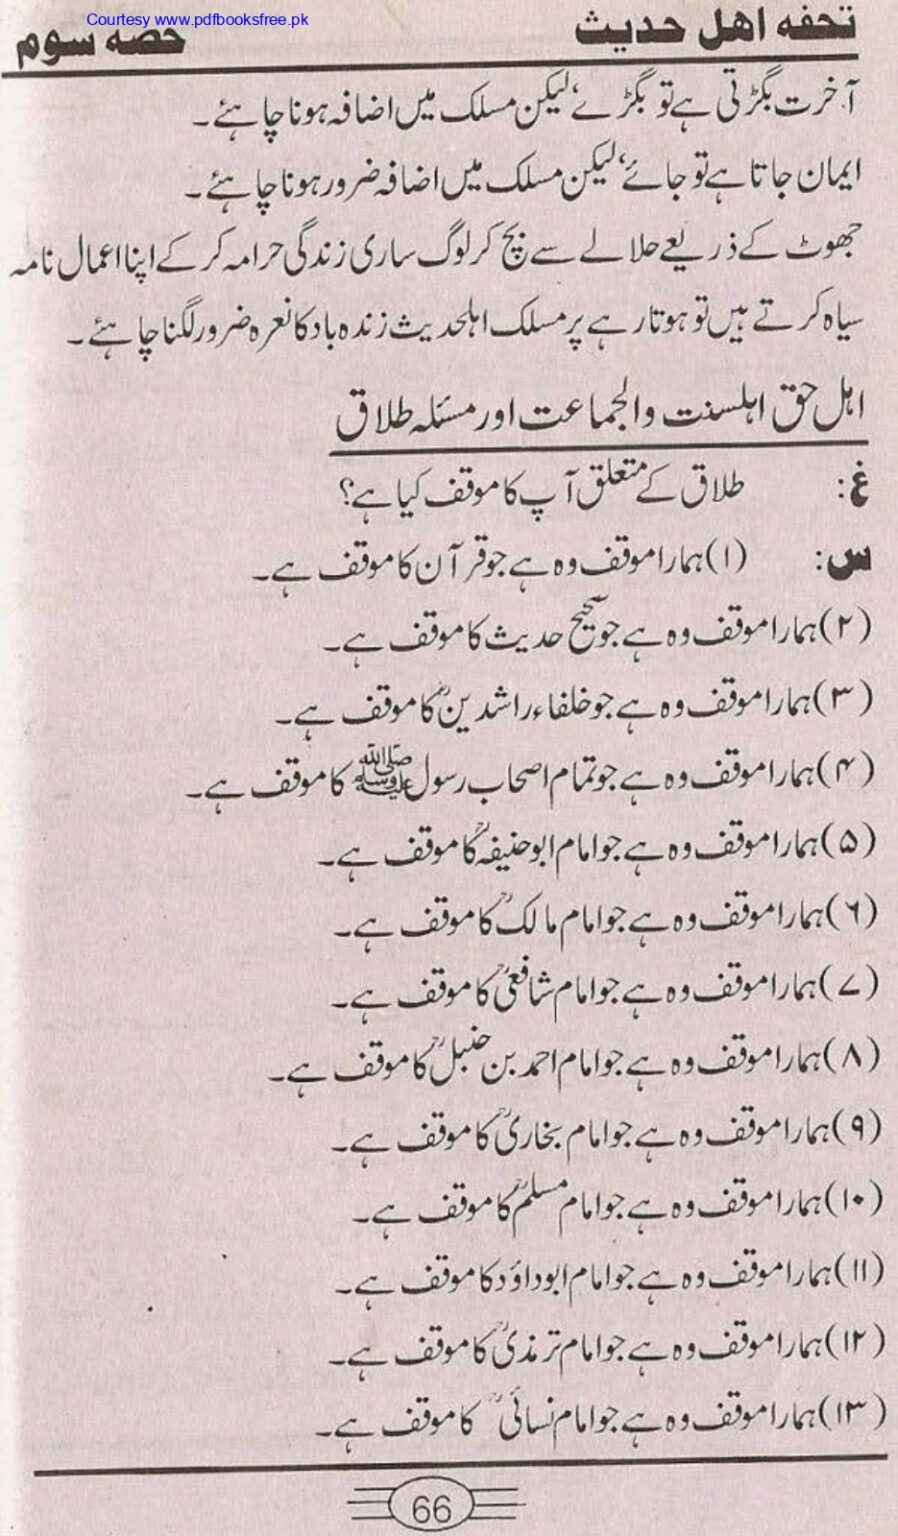 Courtesy www.pdfbooksfree.pk
تحفه اهل حدیث
حصه سوم
آخرت بگڑتی ہے تو بگڑے، لیکن مسلک میں اضافہ ہونا چاہئے۔
ایمان جاتا ہے تو جائے، لیکن مسلک میں اضافہ ضرور ہونا چاہئے۔
جھوٹ کے ذریعے حلالے سے بچ کر لوگ ساری زندگی حرامہ کر کے اپنا اعمال نامہ
سیاہ کرتے ہیں تو ہوتا رہے پر مسلک اہلحدیث زندہ باد کا نعرہ ضرور لگنا چاہئے۔
اہل حق اہلسنت والجماعت اور مسئلہ طلاق
غ: طلاق کے متعلق آپ کا موقف کیا ہے؟
س: (۱) ہمارا موقف وہ ہے جو قرآن کا موقف ہے۔
(۲) ہمارا موقف وہ ہے جو صحیح حدیث کا موقف ہے۔
(۳) ہمارا موقف وہ ہے جو خلفاء راشدینؓ کا موقف ہے۔
(۴) ہمارا موقف وہ ہے جو تمام اصحاب رسول ﷺ کا موقف ہے۔
(۵) ہمارا موقف وہ ہے جو امام ابو حنیفہؒ کا موقف ہے۔
(۶) ہمارا موقف وہ ہے جو امام مالکؒ کا موقف ہے۔
(۷) ہمارا موقف وہ ہے جو امام شافعیؒ کا موقف ہے۔
(۸) ہمارا موقف وہ ہے جو امام احمد بن حنبلؒ کا موقف ہے۔
(۹) ہمارا موقف وہ ہے جو امام بخاریؒ کا موقف ہے۔
(۱۰) ہمارا موقف وہ ہے جو امام مسلمؒ کا موقف ہے۔
(۱۱) ہمارا موقف وہ ہے جو امام ابوداؤد کا موقف ہے۔
(۱۲) ہمارا موقف وہ ہے جو امام ترمذیؒ کا موقف ہے۔
(۱۳) ہمارا موقف وہ ہے جو امام نسائیؒ کا موقف ہے۔
66